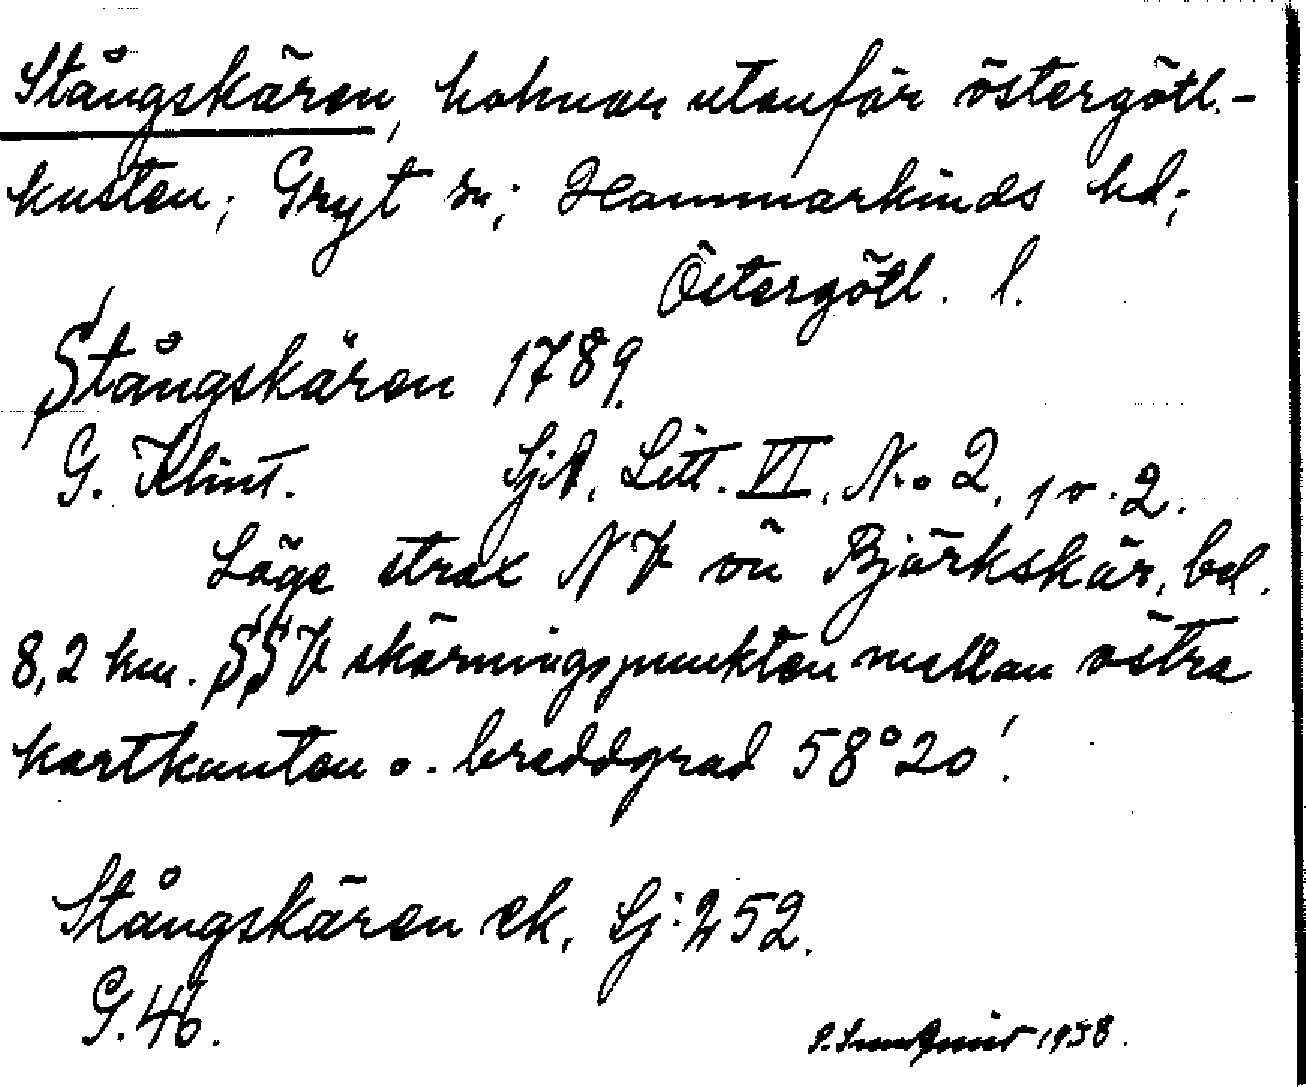 Stångskären, holmar utanför östergötl.-
kusten; Gryt sn; Hammarkinds hd;
Östergötl. l.
Stångskären 1789.
G. Klint. SjA, Litt. VI, No 2, 1 o. 2.
Läge strax NV om Björkskär, bel.
8,2 km. SSV skärningspunkten mellan östra
kartkanten o. breddgrad 58°20'.
Stångskären ek. Sj: 252.
G.46.
1938.